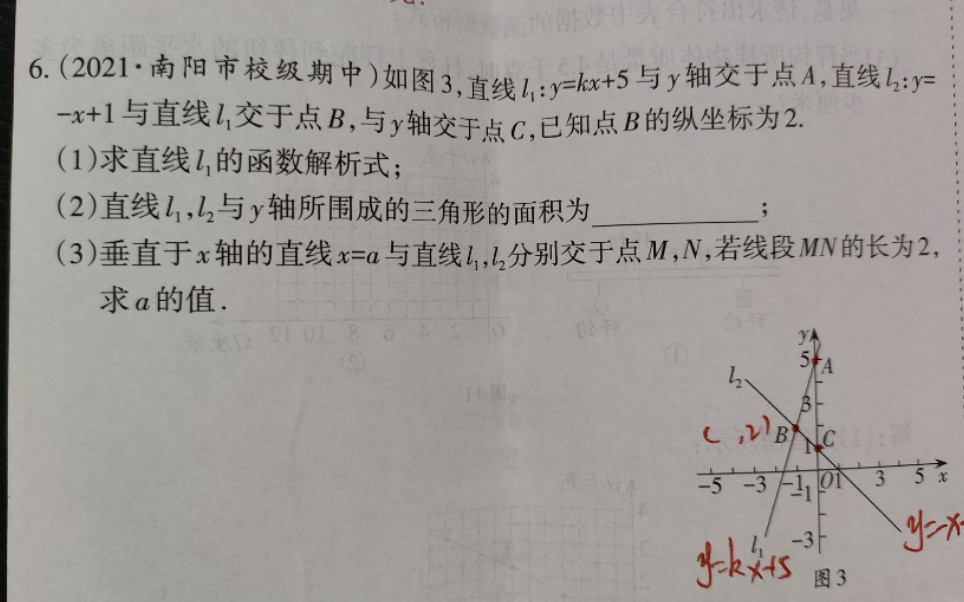 6.(2021·南阳市校级期中)如图3,直线l₁:y=kx+5与y轴交于点A,直线l₂:y=
-x+1与直线l₁交于点B,与y轴交于点C,已知点B的纵坐标为2.
(1)求直线l₁的函数解析式;
(2)直线l₁,l₂与y轴所围成的三角形的面积为____________;
(3)垂直于x轴的直线x=a与直线l₁,l₂分别交于点M,N,若线段MN的长为2,
求a的值.
y
5 A
l₂
3
( ,2) B 1 C
-5 -3 -1 O 1 3 5 x
-1
y=-x
l₁ -3
y=kx+5 图3